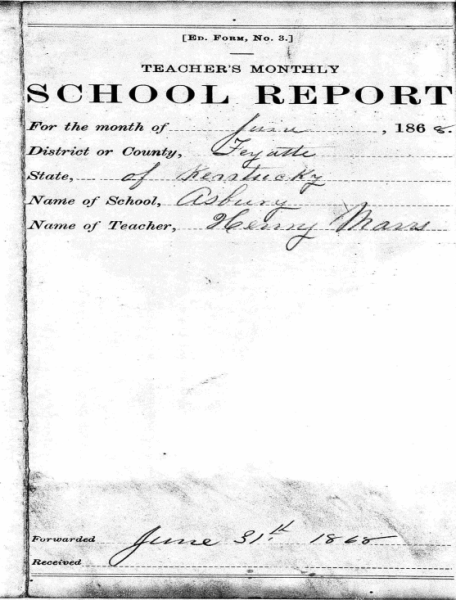 [ED. FORM, No. 3.]
TEACHER'S MONTHLY
SCHOOL REPORT
For the month of June, 1868.
District or County, Fayatte
State, of Kentucky
Name of School, Asbury
Name of Teacher, Henry Marrs
Forwarded June 31th 1868
Received